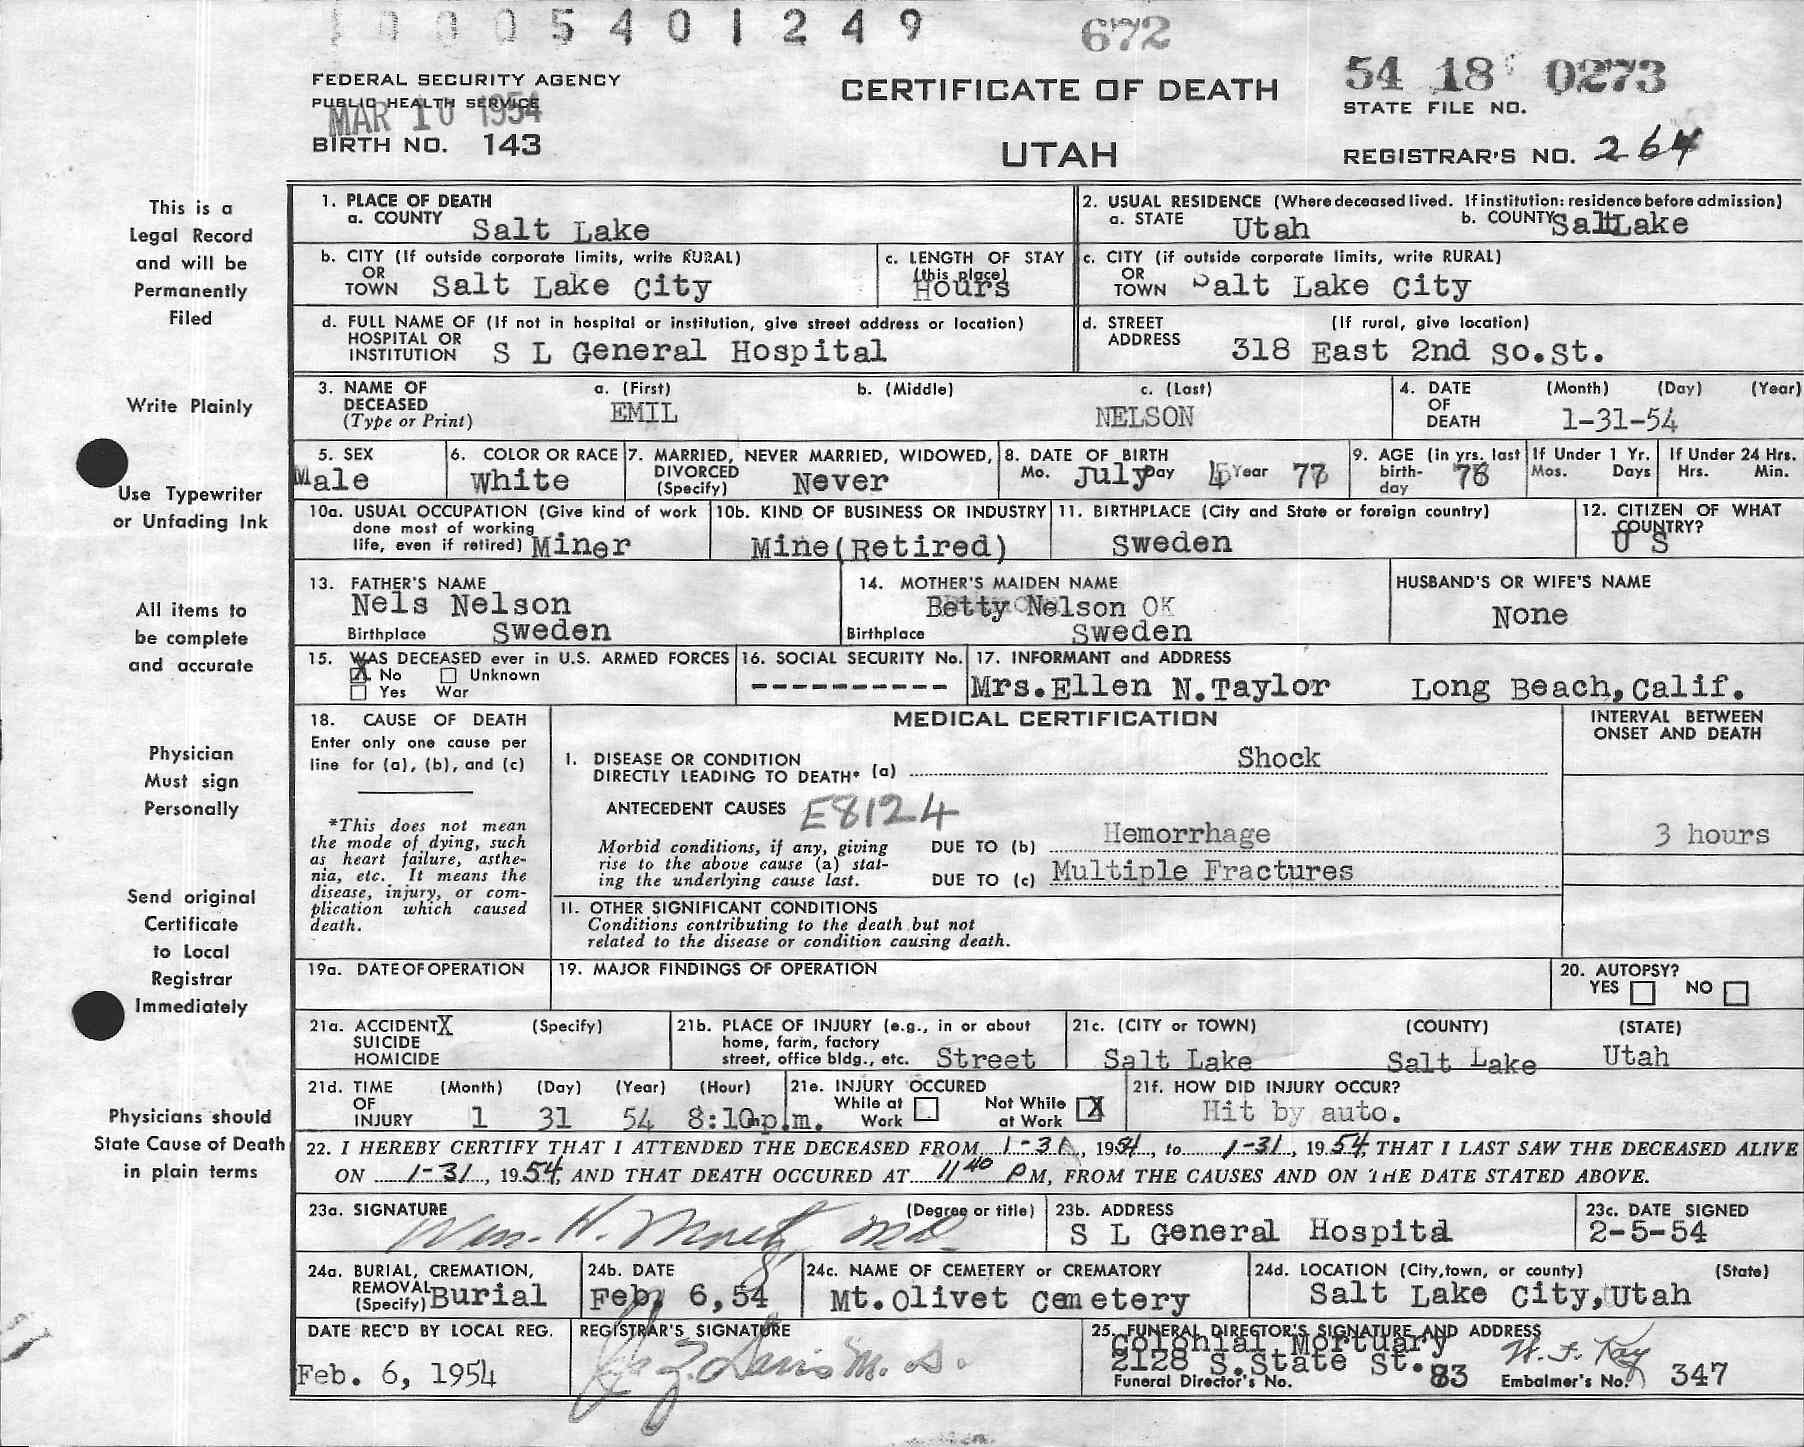 1 0 0 0 5 4 0 1 2 4 9
672
54 18 0273
FEDERAL SECURITY AGENCY
PUBLIC HEALTH SERVICE
MAR 10 1954
BIRTH NO. 143
CERTIFICATE OF DEATH
UTAH
STATE FILE NO.
REGISTRAR'S NO. 264
This is a
Legal Record
and will be
Permanently
Filed
Write Plainly
Use Typewriter
or Unfading Ink
All items to
be complete
and accurate
Physician
Must sign
Personally
Send original
Certificate
to Local
Registrar
Immediately
Physicians should
State Cause of Death
in plain terms
1. PLACE OF DEATH
a. COUNTY Salt Lake
2. USUAL RESIDENCE (Where deceased lived. If institution: residence before admission)
a. STATE Utah b. COUNTY Salt Lake
b. CITY (If outside corporate limits, write RURAL)
OR
TOWN Salt Lake City
c. LENGTH OF STAY
(this place)
Hours
c. CITY (if outside corporate limits, write RURAL)
OR
TOWN Salt Lake City
d. FULL NAME OF (If not in hospital or institution, give street address or location)
HOSPITAL OR
INSTITUTION S L General Hospital
d. STREET (If rural, give location)
ADDRESS 318 East 2nd So.St.
3. NAME OF a. (First) b. (Middle) c. (Last)
DECEASED
(Type or Print) EMIL NELSON
4. DATE (Month) (Day) (Year)
OF
DEATH 1-31-54
5. SEX
Male
6. COLOR OR RACE
White
7. MARRIED, NEVER MARRIED, WIDOWED,
DIVORCED
(Specify) Never
8. DATE OF BIRTH
Mo. July Day Year
9. AGE (in yrs. last
birth-
day
If Under 1 Yr.
Mos. Days
If Under 24 Hrs.
Hrs. Min.
10a. USUAL OCCUPATION (Give kind of work
done most of working
life, even if retired) Miner
10b. KIND OF BUSINESS OR INDUSTRY
Mine(Retired)
11. BIRTHPLACE (City and State or foreign country)
Sweden
12. CITIZEN OF WHAT
COUNTRY?
U S
13. FATHER'S NAME
Nels Nelson
Birthplace Sweden
14. MOTHER'S MAIDEN NAME
Betty Nelson OK
Birthplace Sweden
HUSBAND'S OR WIFE'S NAME
None
15. WAS DECEASED ever in U.S. ARMED FORCES
X No Unknown
Yes War
16. SOCIAL SECURITY No.
----------
17. INFORMANT and ADDRESS
Mrs.Ellen N.Taylor Long Beach,Calif.
18. CAUSE OF DEATH
Enter only one cause per
line for (a), (b), and (c)
*This does not mean
the mode of dying, such
as heart failure, asthe-
nia, etc. It means the
disease, injury, or com-
plication which caused
death.
MEDICAL CERTIFICATION
INTERVAL BETWEEN
ONSET AND DEATH
I. DISEASE OR CONDITION
DIRECTLY LEADING TO DEATH* (a) Shock
ANTECEDENT CAUSES E8124
Morbid conditions, if any, giving
rise to the above cause (a) stat-
ing the underlying cause last.
DUE TO (b) Hemorrhage 3 hours
DUE TO (c) Multiple Fractures
II. OTHER SIGNIFICANT CONDITIONS
Conditions contributing to the death but not
related to the disease or condition causing death.
19a. DATE OF OPERATION
19. MAJOR FINDINGS OF OPERATION
20. AUTOPSY?
YES NO
21a. ACCIDENT X (Specify)
SUICIDE
HOMICIDE
21b. PLACE OF INJURY (e.g., in or about
home, farm, factory
street, office bldg., etc. Street
21c. (CITY or TOWN) (COUNTY) (STATE)
Salt Lake Salt Lake Utah
21d. TIME (Month) (Day) (Year) (Hour)
OF
INJURY 1 31 54 8:10 p.m.
21e. INJURY OCCURED
While at
Work
Not While
at Work X
21f. HOW DID INJURY OCCUR?
Hit by auto.
22. I HEREBY CERTIFY THAT I ATTENDED THE DECEASED FROM 1-31, 1954, to 1-31, 1954, THAT I LAST SAW THE DECEASED ALIVE
ON 1-31, 1954, AND THAT DEATH OCCURED AT 11 40 PM, FROM THE CAUSES AND ON THE DATE STATED ABOVE.
23a. SIGNATURE (Degree or title)
Wm. H. MD.
23b. ADDRESS
S L General Hospital
23c. DATE SIGNED
2-5-54
24a. BURIAL, CREMATION,
REMOVAL
(Specify) Burial
24b. DATE
Feb, 6,54
24c. NAME OF CEMETERY or CREMATORY
Mt.Olivet Cemetery
24d. LOCATION (City,town, or county) (State)
Salt Lake City,Utah
DATE REC'D BY LOCAL REG.
Feb. 6, 1954
REGISTRAR'S SIGNATURE
Davis M.D.
25. FUNERAL DIRECTOR'S SIGNATURE AND ADDRESS
Colonial Mortuary
2128 S.State St. W. F. Kay
Funeral Director's No. 83 Embalmer's No. 347